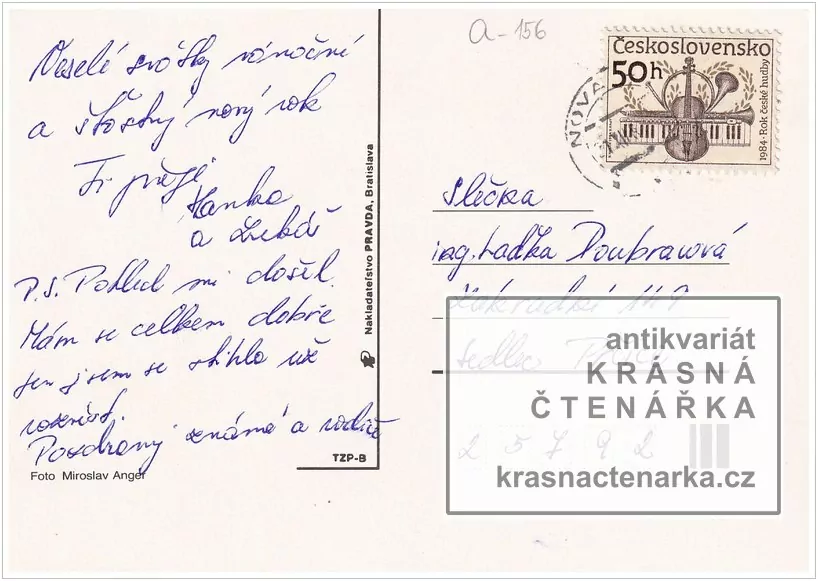 Veselé svátky vánoční
a šťastný nový rok
Ti přejí
Hanka
a Lukáš
P.S. Pohled mi došel.
Mám se celkem dobře
jen jsem se stihla už
rozvést.
Pozdravuj známé a rodiče
Foto Miroslav Anger
TZP-B
Nakladateľstvo PRAVDA, Bratislava
a-156
Československo
50h
1984·Rok české hudby
NOVÁ
Slečka
ing. Laďka Doubravová
Zahradní 119
Sedlec
2 5 7 9 2
antikvariát
KRÁSNÁ
ČTENÁŘKA
krasnactenarka.cz